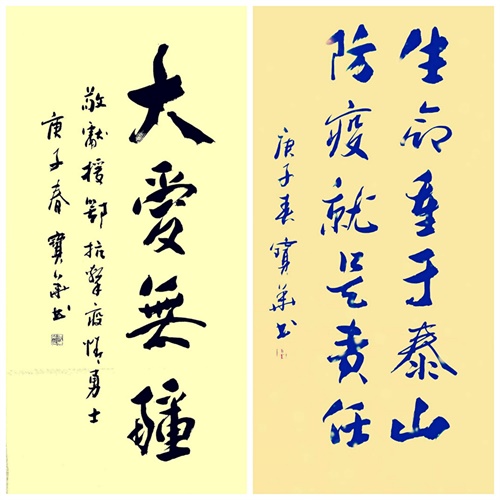 大愛無疆
敬獻援鄂抗擊疫情勇士
庚子春寶華书
生命重于泰山
防疫就是责任
庚子春寶華书